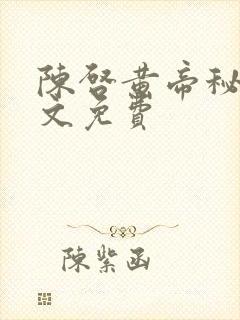 陳啓黃帝秘
文免費
陳紫函